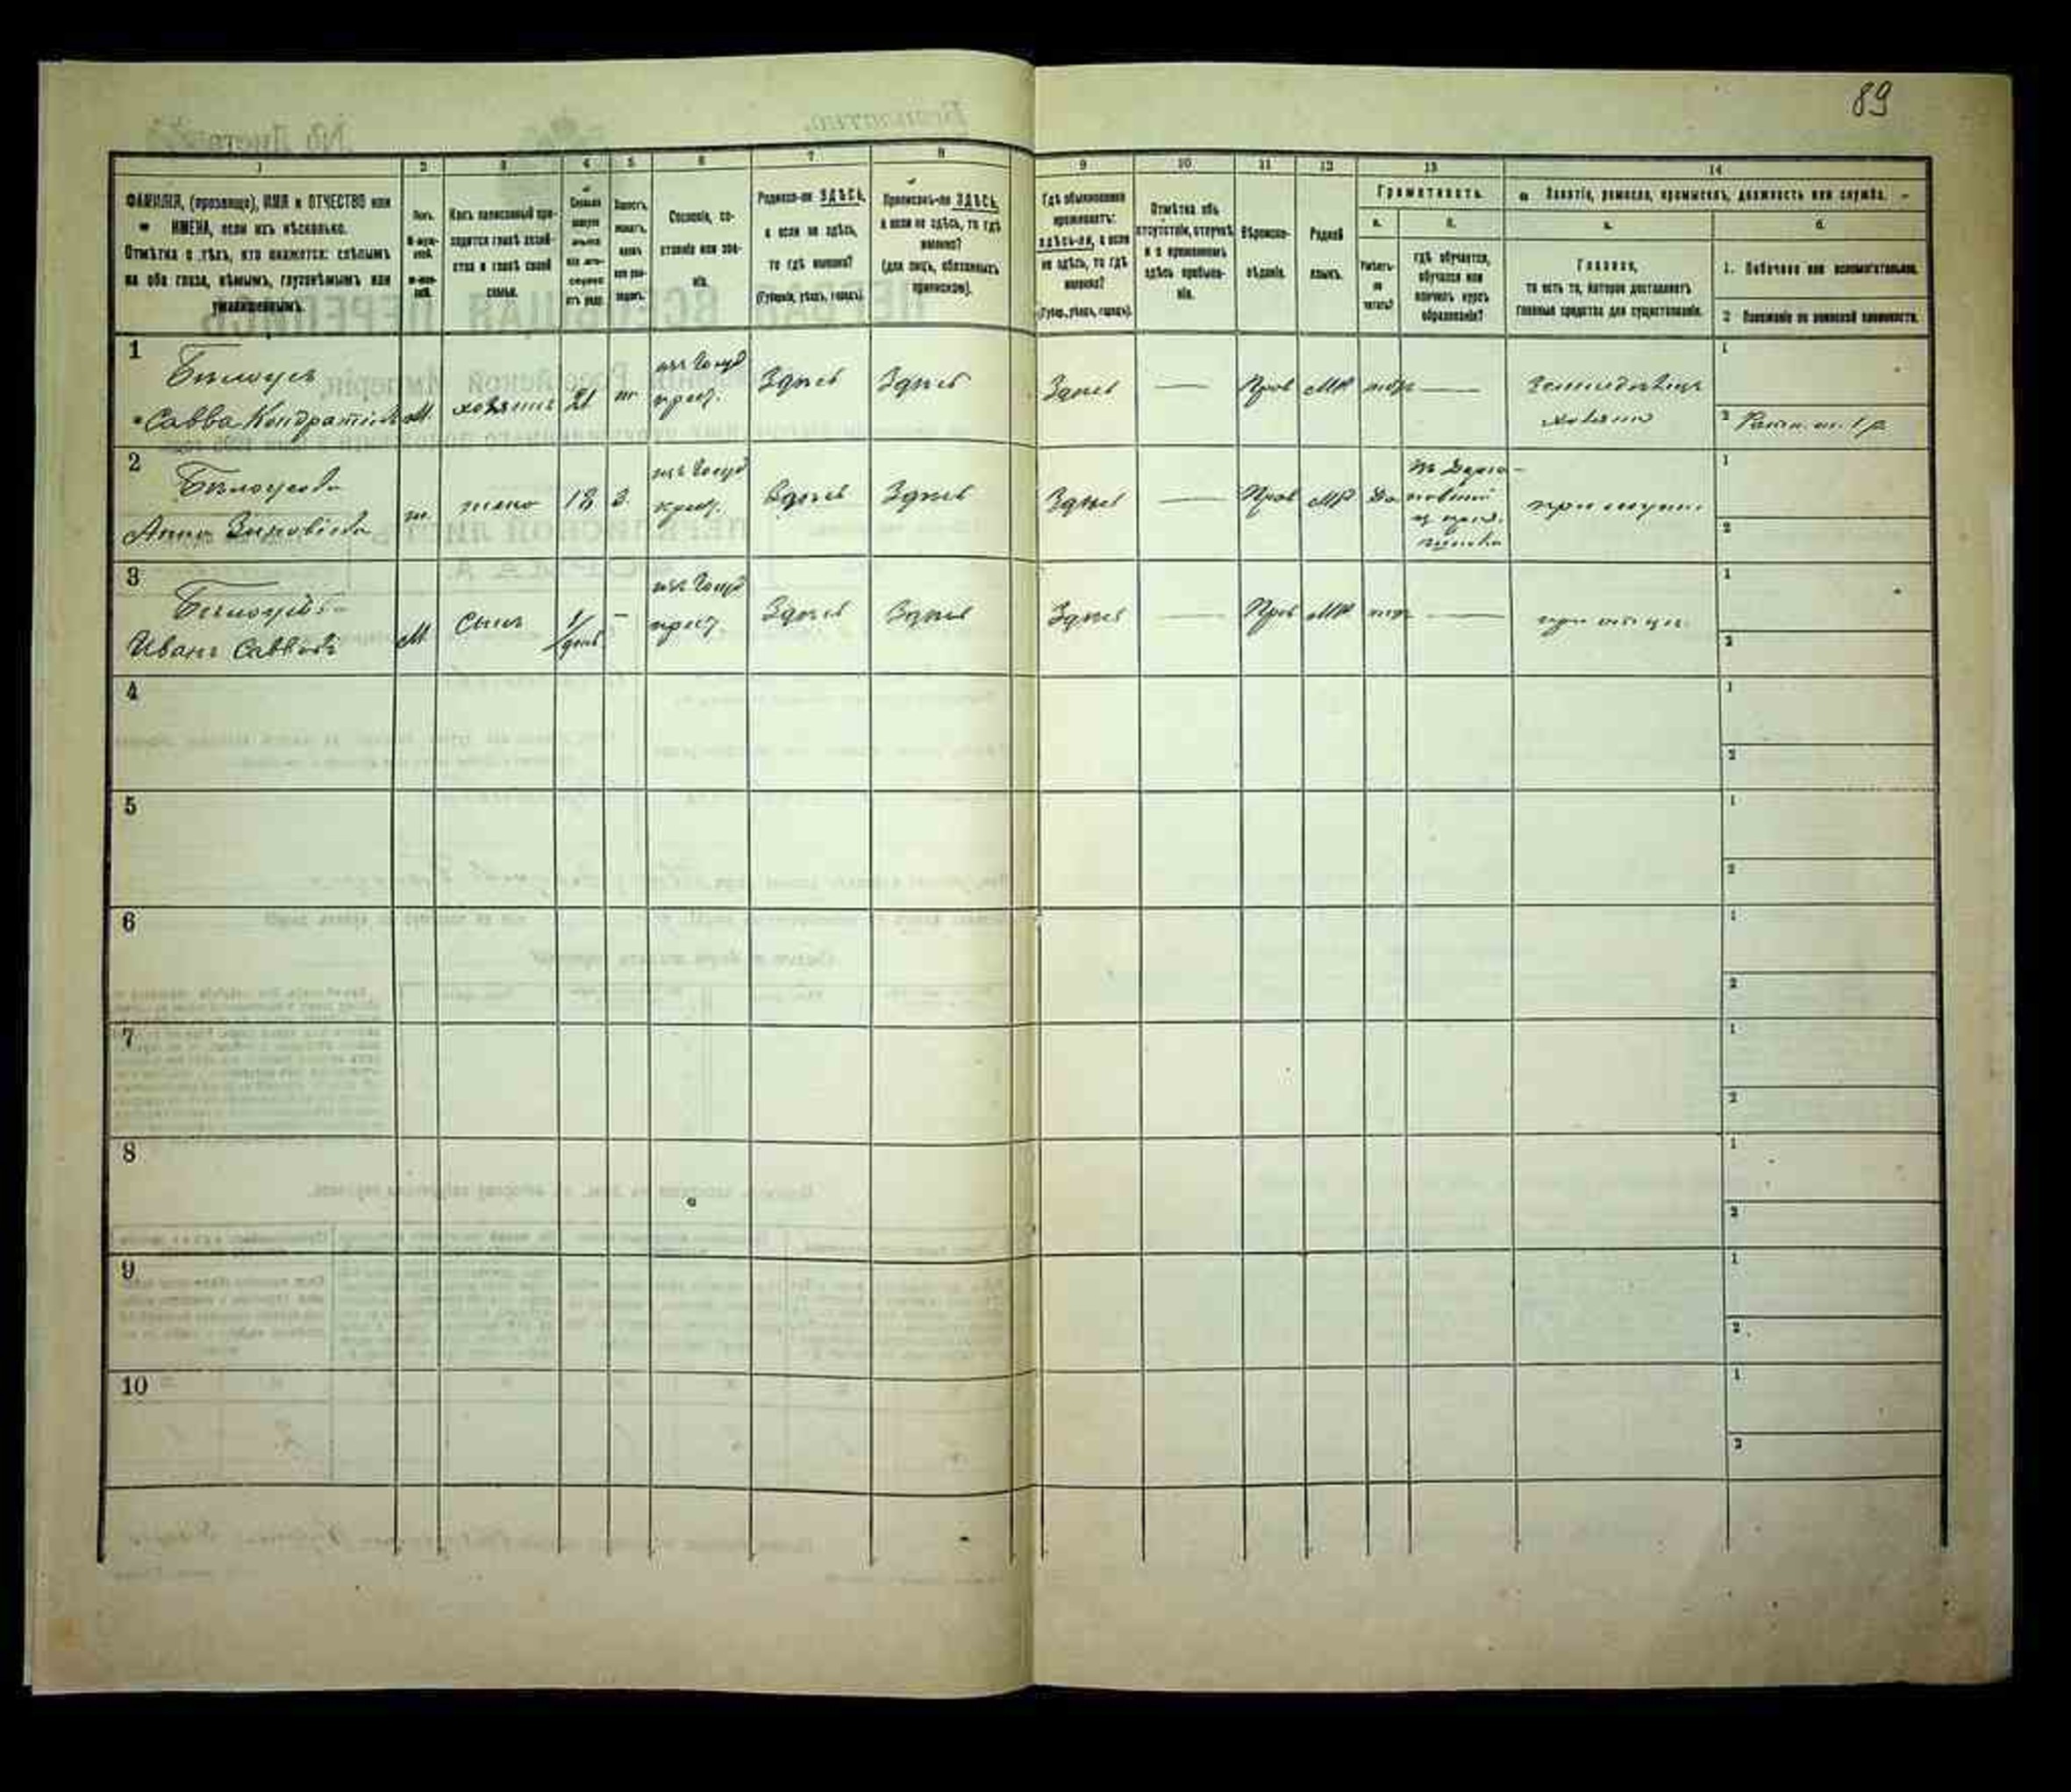 89
1
2
3
4
5
6
7
8
9
10
11
12
13
14
ФАМИЛІЯ, (прозвище), ИМЯ и ОТЧЕСТВО или
ИМЕНА, если ихъ нѣсколько.
Отмѣтка о тѣхъ, кто окажется: слѣпымъ
на оба глаза, нѣмымъ, глухонѣмымъ или
умалишеннымъ.
Полъ.
М-муж-
ской.
ж-жен-
скій.
Какъ записанный при-
ходится главѣ хозяй-
ства и главѣ своей
семьи.
Сколько
минуло
лѣтъ
или мѣ-
сяцевъ
отъ роду.
Холостъ,
женатъ,
вдовъ
или раз-
веденъ.
Сословіе, со-
стояніе или зва-
ніе.
Родился-ли ЗДѢСЬ,
а если не здѣсь,
то гдѣ именно?
(Губернія, уѣздъ, городъ).
Приписанъ-ли ЗДѢСЬ,
а если не здѣсь, то гдѣ
именно?
(для лицъ, обязанныхъ
припискою).
Гдѣ обыкновенно
проживаетъ:
здѣсь-ли, а если
не здѣсь, то гдѣ
именно?
(Губер., уѣздъ, городъ).
Отмѣтка объ
отсутствіи, отлучкѣ
и о временномъ
здѣсь пребыва-
ніи.
Вѣроиспо-
вѣданіе.
Родной
языкъ.
Грамотность.
а.
б.
Умѣетъ-
ли
читать?
гдѣ обучается,
обучался или
кончилъ курсъ
образованія?
Занятіе, ремесло, промыселъ, должность или служба.
а.
б.
Главное,
то есть то, которое доставляетъ
главныя средства для существованія.
1. Побочное или вспомогательное.
2 Положеніе по воинской повинности.
1
Бѣлоусъ
Савва Кондратіевъ
М
хозяинъ
21
ж
изъ Госуд
крест.
Здѣсь
Здѣсь
Здѣсь
—
Прав
МР
нѣтъ
—
Земледѣлецъ
хозяинъ
1
2
2
Бѣлоусова
Анна
ж.
жена
18
З
изъ Госуд
крест.
Здѣсь
Здѣсь
Здѣсь
—
Прав
МР
Да
1
2
3
Бѣлоусъ
Иванъ Саввовъ
М
сынъ
1/день
–
изъ Госуд
крест
Здѣсь
Здѣсь
Здѣсь
—
Прав
МР
нѣтъ
—
при отцѣ
1
2
4
1
2
5
1
2
6
1
2
7
1
2
8
1
2
9
1
2
10
1
2